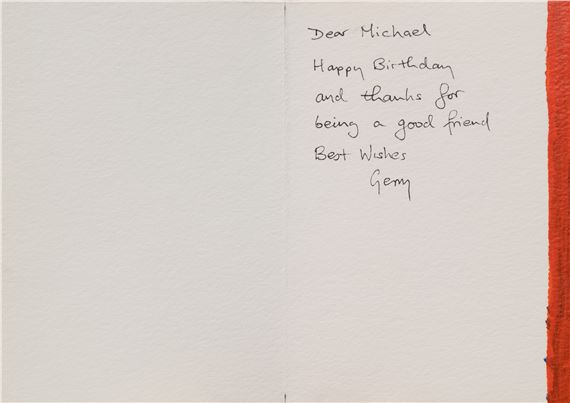 Dear Michael
Happy Birthday
and thanks for
being a good friend
Best Wishes
Gerry